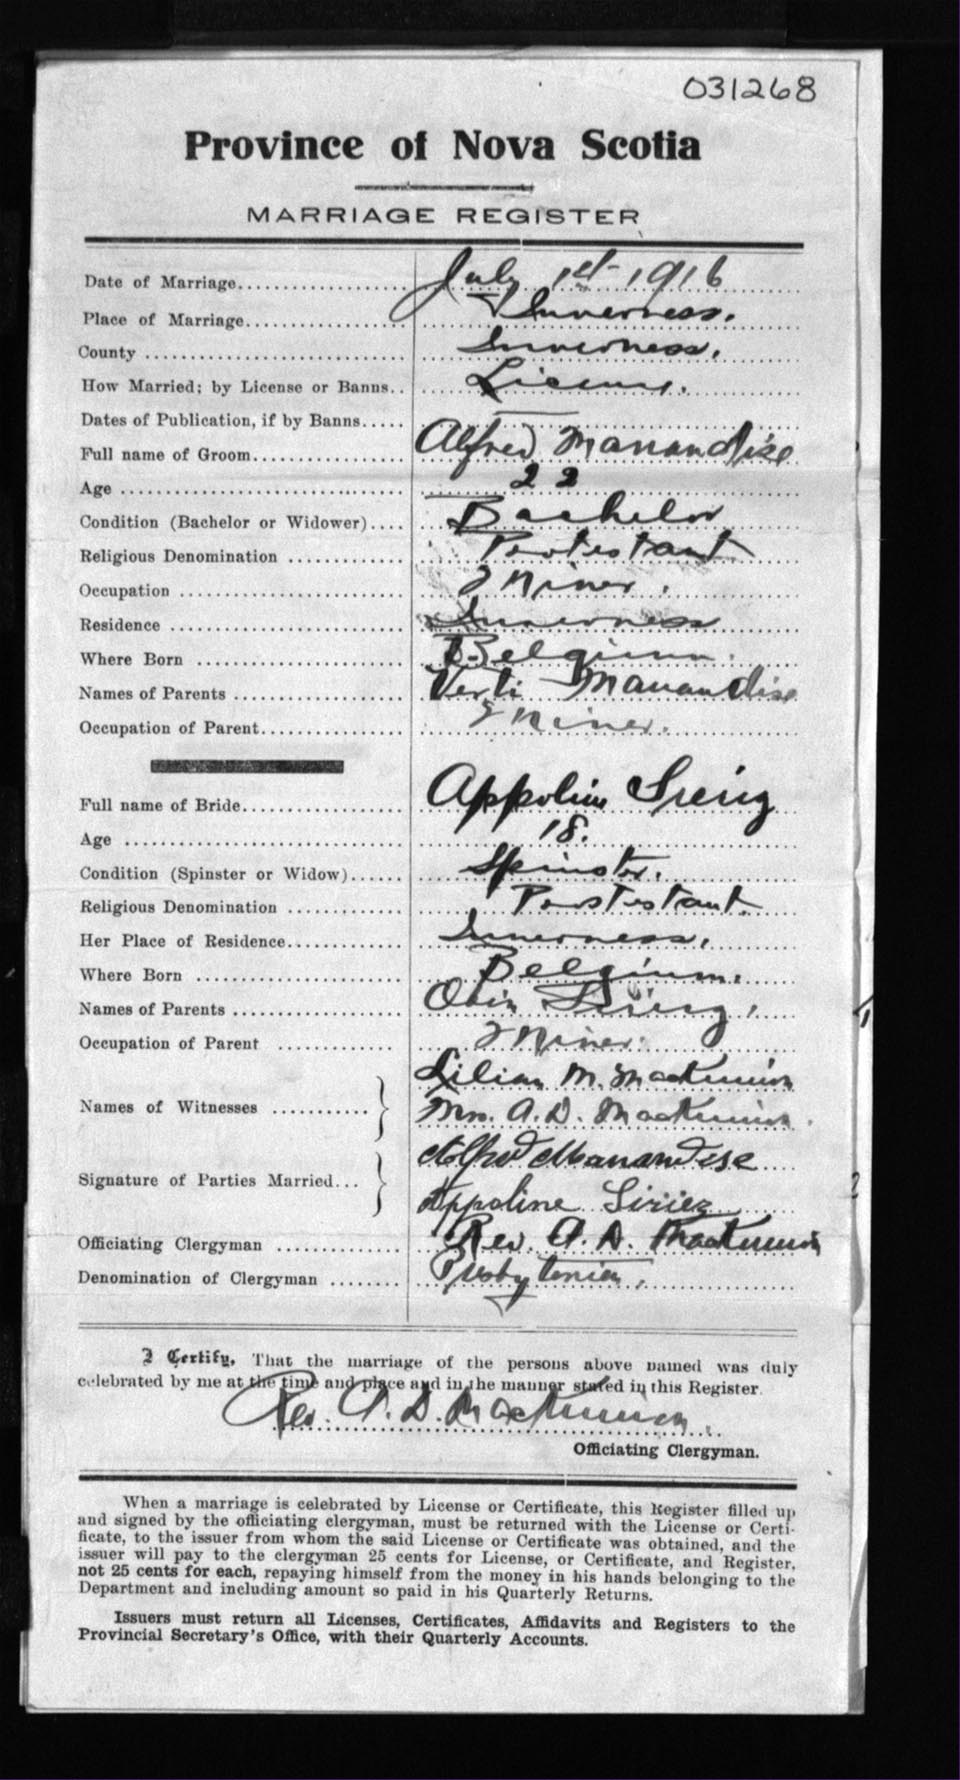 031268
Province of Nova Scotia
MARRIAGE REGISTER
Date of Marriage.................. July 1st - 1916
Place of Marriage................. Inverness.
County ........................... Inverness.
How Married; by License or Banns.. License.
Dates of Publication, if by Banns..... —
Full name of Groom................ Alfred Manandise
Age .............................. 22
Condition (Bachelor or Widower).... Bachelor
Religious Denomination ............ Protestant
Occupation ....................... Miner.
Residence ........................ Inverness
Where Born ....................... Belgium.
Names of Parents ................. Manandise
Occupation of Parent.............. Miner.
Full name of Bride................ Appoline
Age .............................. 18.
Condition (Spinster or Widow)...... Spinster.
Religious Denomination ............ Protestant.
Her Place of Residence............ Inverness.
Where Born ....................... Belgium.
Names of Parents .................
Occupation of Parent ............. Miner.
Names of Witnesses ........... } Lilian M. MacKinnon
Mrs. A. D. MacKinnon
Signature of Parties Married... } Alfred Manandise
Appoline Siriez
Officiating Clergyman ............. Rev. A. D. MacKinnon
Denomination of Clergyman ........ Presbyterian.
I Certify, That the marriage of the persons above named was duly
celebrated by me at the time and place and in the manner stated in this Register.
Rev. A. D. MacKinnon.
Officiating Clergyman.
When a marriage is celebrated by License or Certificate, this Register filled up
and signed by the officiating clergyman, must be returned with the License or Certi-
ficate, to the issuer from whom the said License or Certificate was obtained, and the
issuer will pay to the clergyman 25 cents for License, or Certificate, and Register,
not 25 cents for each, repaying himself from the money in his hands belonging to the
Department and including amount so paid in his Quarterly Returns.
Issuers must return all Licenses, Certificates, Affidavits and Registers to the
Provincial Secretary's Office, with their Quarterly Accounts.